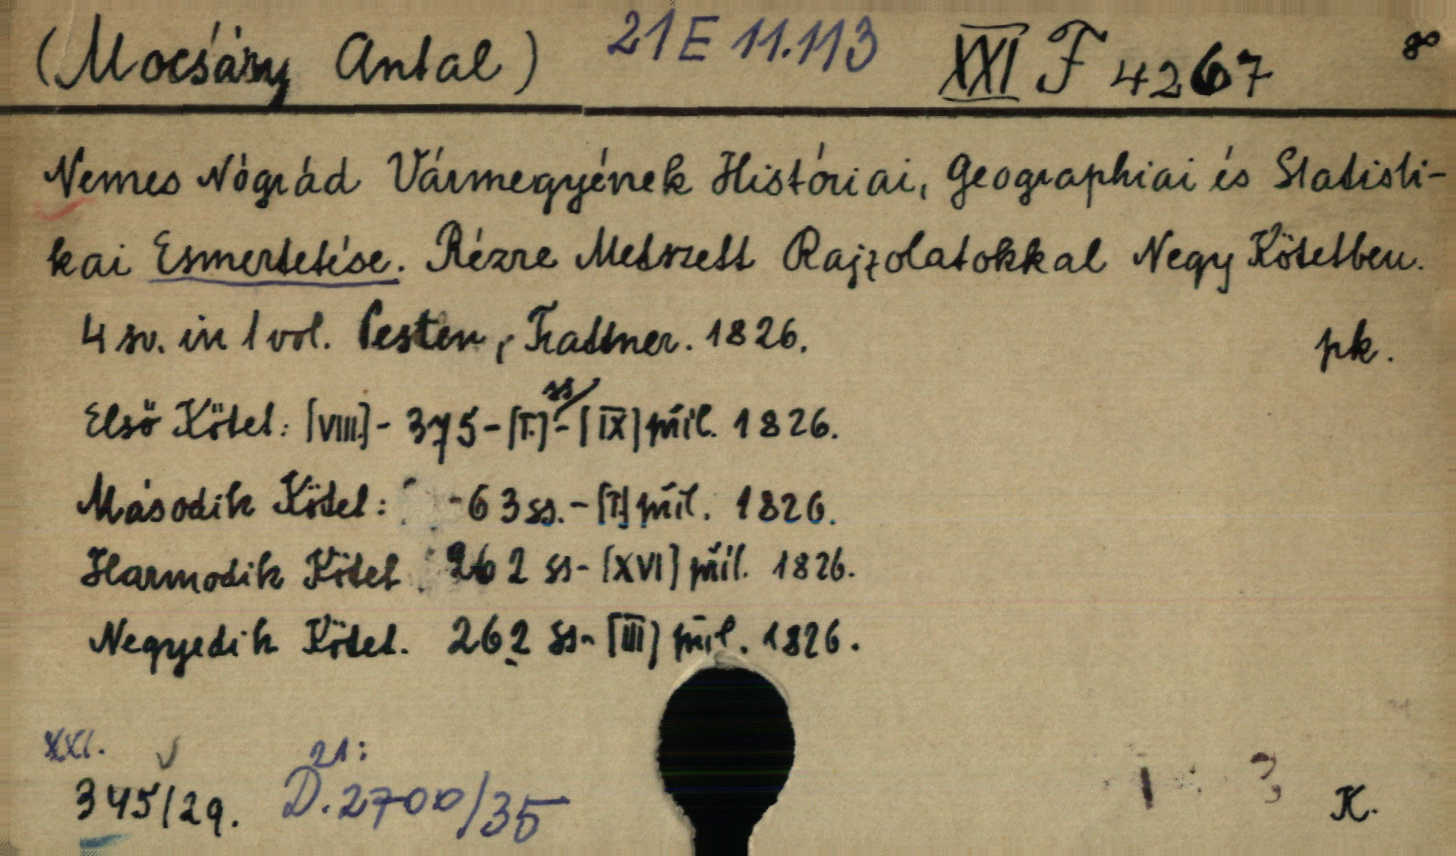 (Mocsáry Antal) 21 E 11.113 XXI F 4267 8°
Nemes Nógrád Vármegyének Históriai, Geographiai és Statisti-
kai Esmertetése. Rézre Metszett Rajzolatokkal Negy Kötetben.
4 sv. in 1 vol. Pesten, Trattner. 1826. pk.
Első Kötet: [VIII.]- 375-[I.] ss -[IX] příl. 1826.
Második Kötet: -63 ss.-[I] příl. 1826.
Harmodik Kötet. 262 ss- [XVI] příl. 1826.
Negyedik Kötet. 262 ss- [III] příl. 1826.
XXI. 21:
345/29. D.2700/35 K.